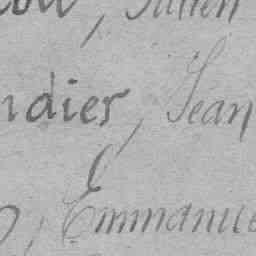 , Julien
ndier, Jean
, Emmanue